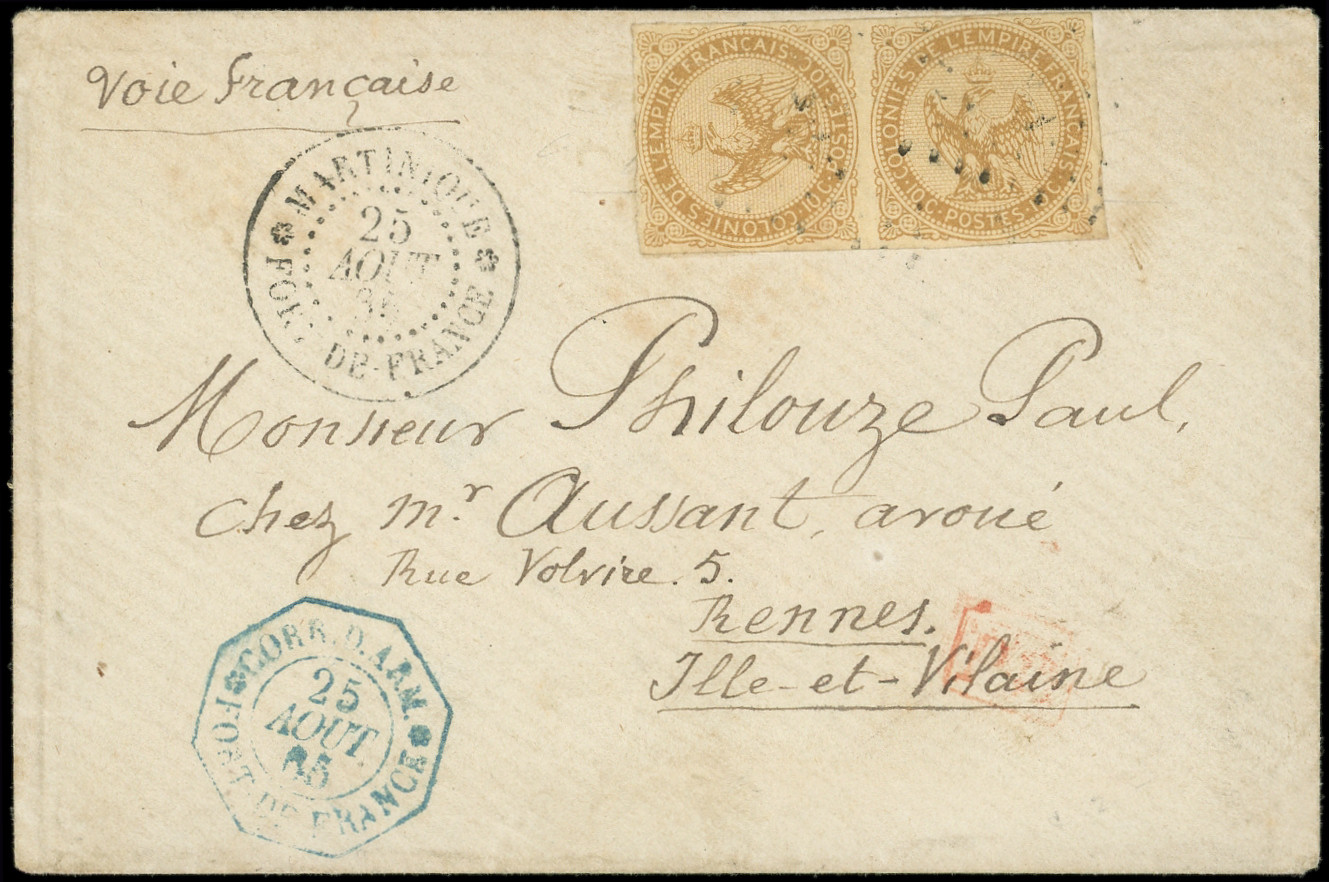 Voie Française
COLONIES DE L'EMPIRE FRANÇAIS
10c. POSTES. 10c.
COLONIES DE L'EMPIRE FRANÇAIS
10c. POSTES. 10c.
MARTINIQUE
25
AOUT
FORT-DE-FRANCE
Monsieur Philouze Paul,
chez mr. Aussant, avoué
Rue Volvire. 5.
Rennes.
Ille-et-Vilaine
CORR. D. ARM.
25
AOUT
65
FORT DE FRANCE